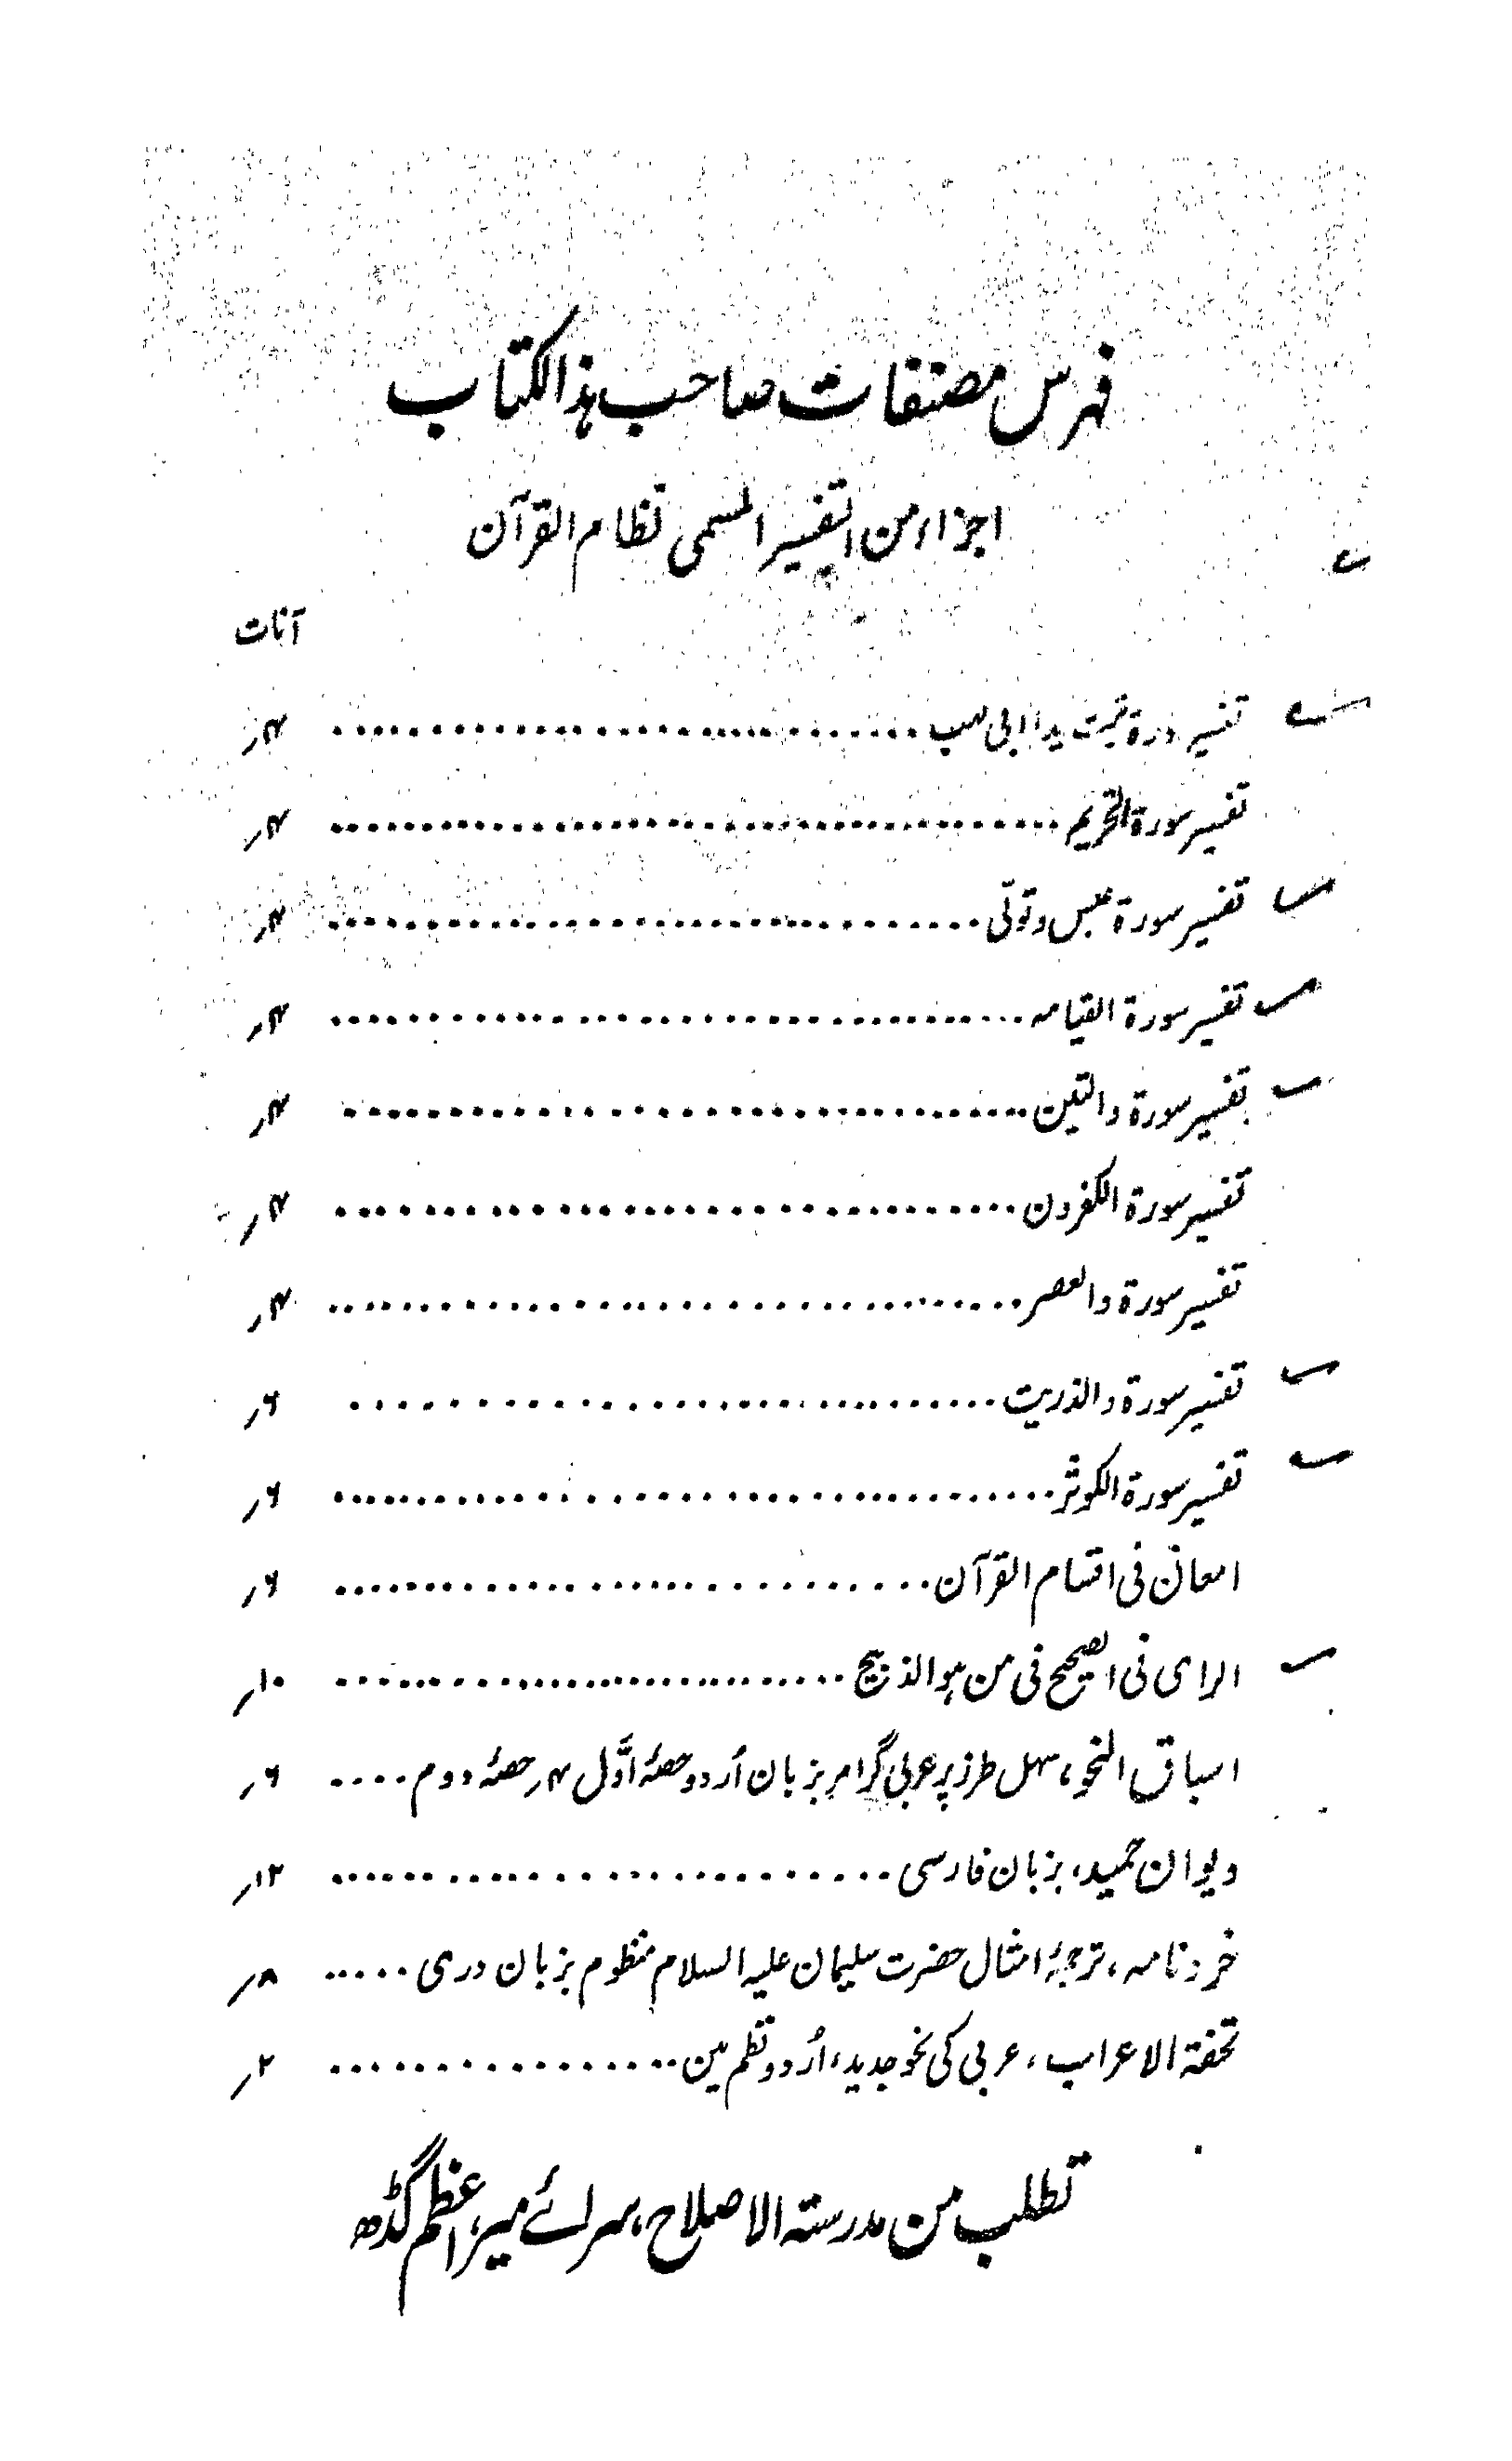 فہرس مصنفات صاحب ہذا لکتاب
اجزاء من التفسیر المسمی نظام القرآن
آنات
تفسیر سورۃ تبت یدا ابی لہب .......... ۴ر
تفسیر سورۃ التحریم .......... ۴ر
تفسیر سورۃ عبس وتولّی .......... ۴ر
تفسیر سورۃ القیامہ .......... ۴ر
تفسیر سورۃ والتین .......... ۴ر
تفسیر سورۃ الکفرون .......... ۴ر
تفسیر سورۃ والعصر .......... ۴ر
تفسیر سورۃ والذریت .......... ۶ر
تفسیر سورۃ الکوثر .......... ۶ر
امعان فی اقسام القرآن .......... ۶ر
الرای فی الصحیح فی من ہو الذبیح .......... ۱۰ر
اسباق النحو، سہل طرز پر عربی گرامر بزبان اُردو حصۂ اوَّل ۴ر حصۂ دوم .... ۶ر
دیوان حمید، بزبان فارسی .......... ۱۲ر
خردنامہ، ترجمۂ امثال حضرت سلیمان علیہ السلام منظوم بزبان دری ..... ۸ر
تحفۃ الاعراب، عربی کی نحو جدید، اُردو نظم مین .......... ۲ر
تطلب من مدرستہ الاصلاح، سرائے میر، اعظم گڈھ